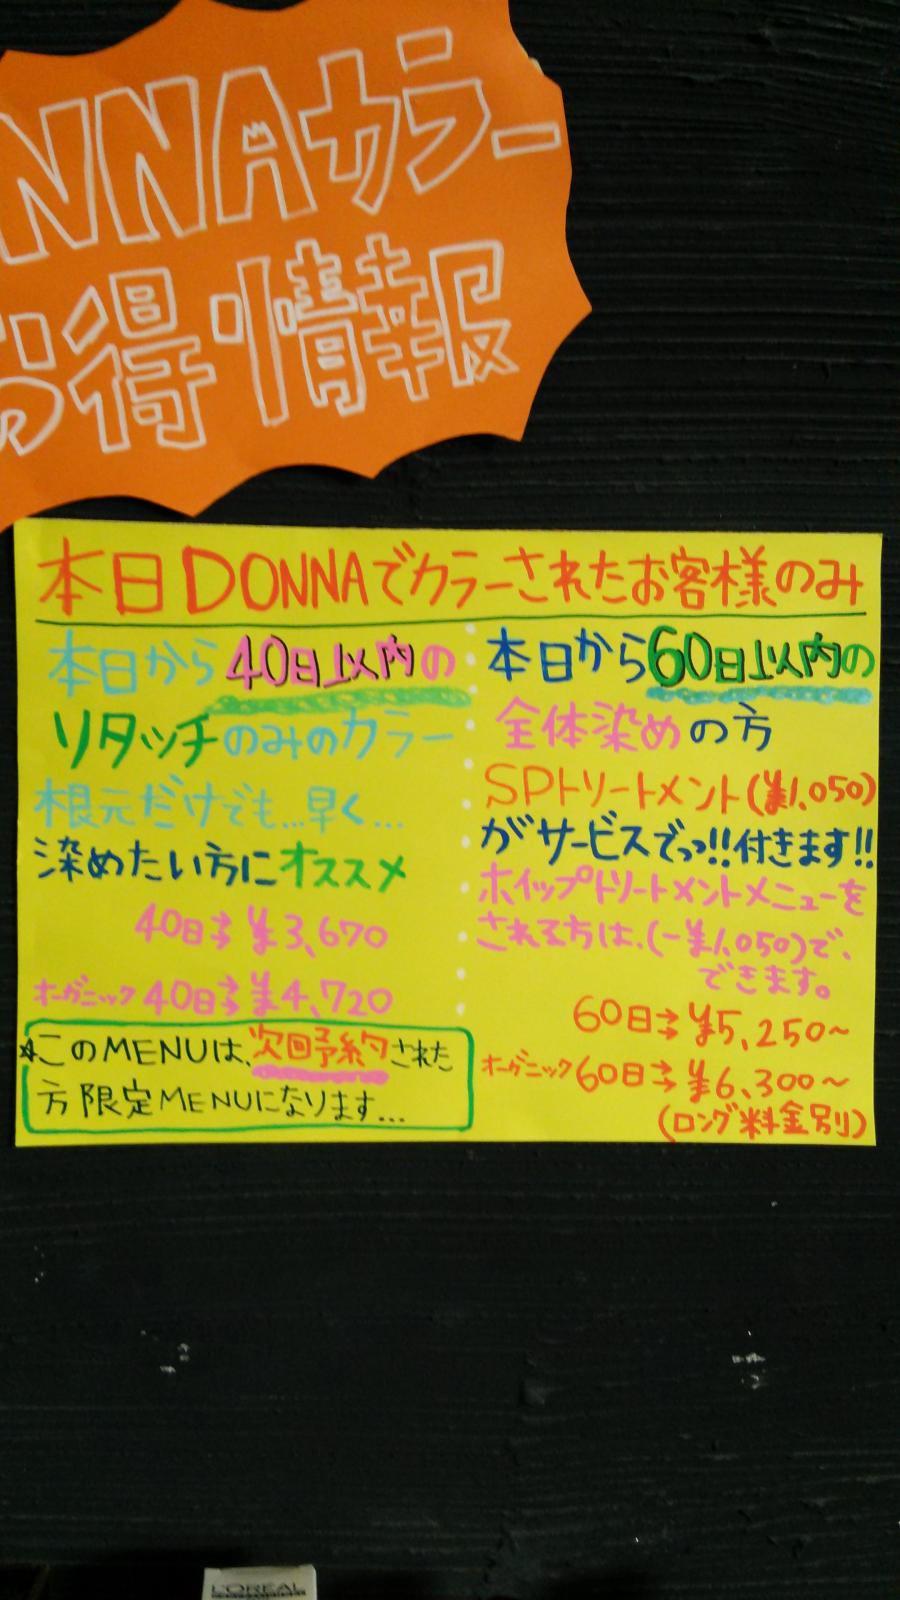 NNAカラー
お得情報
本日DONNAでカラーされたお客様のみ
本日から40日以内の
リタッチのみのカラー
根元だけでも...早く...
染めたい方にオススメ
40日→¥3,670
オーガニック40日→¥4,720
☆このMENUは、次回予約された
方限定MENUになります...
本日から60日以内の
全体染めの方
SPトリートメント(¥1,050)
がサービスでっ!!付きます!!
ホイップトリートメントメニューを
される方は、(-¥1,050)で、
できます。
60日→¥5,250~
オーガニック60日→¥6,300~
(ロング料金別)
L'OREAL